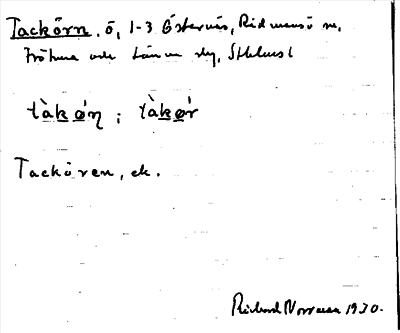 Tackörn. ö, 1-3 Östernäs, Ridmansö sn,
Frötuna och Länna skg, Sthlms l
tàkǿn ; tàkǿr
Tackören, ek.
Richard Norrman 1930.